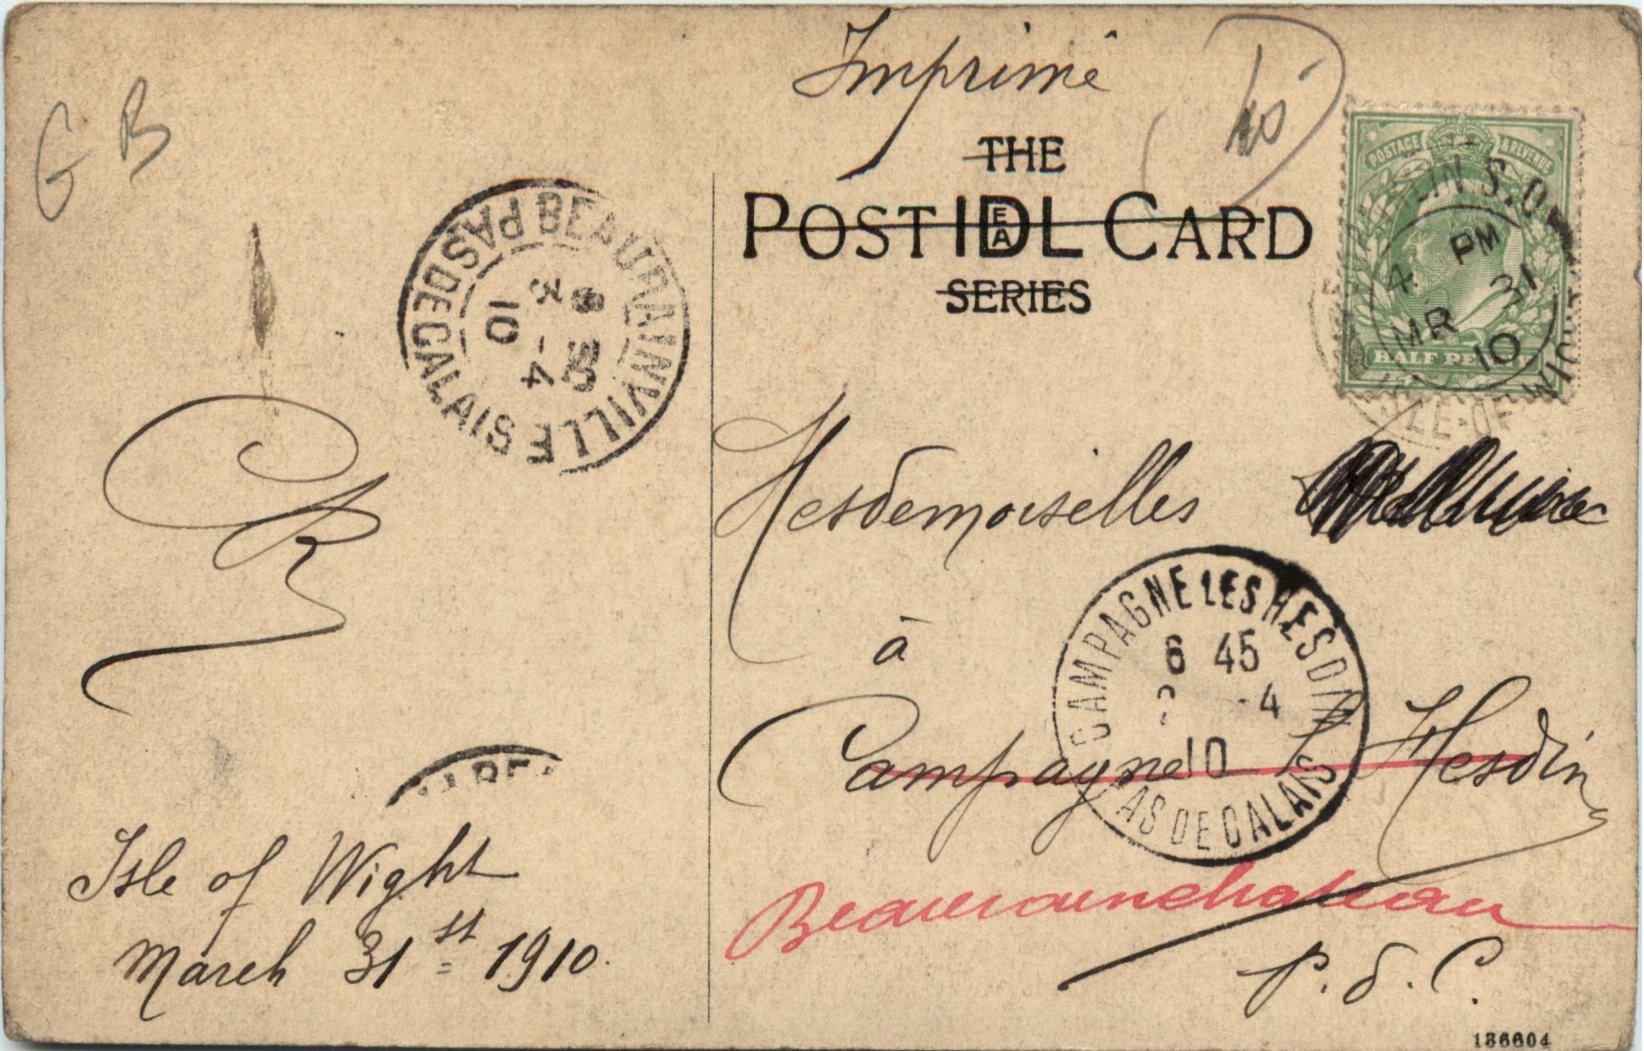 Imprimé
40
G B
THE
POST IDEAL CARD
SERIES
POSTAGE & REVENUE
HALF PE
S.O.
4 PM
MR 31
10
ISLE-OF
BEAURAINVILLE
PAS DE CALAIS
8 50
3 -4
10
Mesdemoiselles
à
Campagne l Hesdin
CAMPAGNE LES HESDIN
6 45
-4
10
PAS DE CALAIS
Beaurainchateau
P. d. C.
Isle of Wight
March 31st 1910.
136604